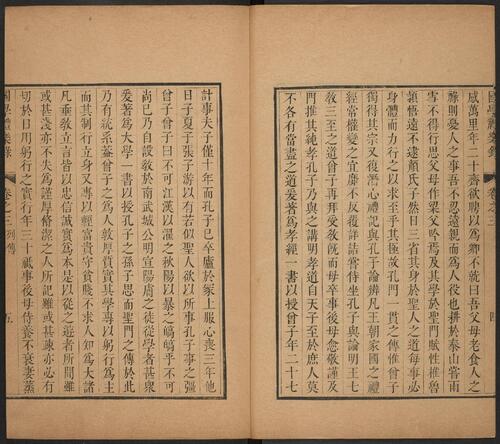 咸萬里年二十齊欲聘以爲卿不就曰吾父母老食人之
祿則憂人之事吾不忍遠親而爲人役也耕於泰山嘗雨
雪不得行思父母作梁父吟焉及其學於聖門賦性推魯
穎悟遠不逮顏氏子然日以三省其身於聖人之道每事必
身體而力行之以求至乎其極故孔門一貫之傳惟曾子
獨得其宗又復潛心禮記與孔子論辨凡王朝家國之禮
經常權變之宜靡不反復詳詰嘗侍坐孔子與論明王七
敎三至之道曾子再拜受敎旣而母卒事後母愈敬謹及
門推其純孝孔子乃與之講明孝道自天子至於庶人莫
不各有當盡之道爰著爲孝經一書以授曾子年二十七
計事夫子僅十年而孔子已卒廬於冢上服心喪三年他
日子夏子張子游以有若似聖人欲以所事孔子事之彊
曾子曾子曰不可江漢以濯之秋陽以暴之皜皜乎不可
尚已乃自設敎於南武城公明宣陽膚之徒從學者甚衆
爰著爲大學一書以授孔子之孫子思而聖門之傳於此
乃有統系蓋曾子之爲人敦厚質實其學專以躬行爲主
而其制行立身又專以輕富貴守貧賤不求人知爲大諸
凡垂敎立言皆以忠信誠實爲本是以從之遊者所聞雖
或甚淺亦不失爲謹厚脩潔之人所記雖或甚疎亦必有
切於日用躬行之實行年三十祗事後母侍養不衰妻蒸
卷之三 列傳
五